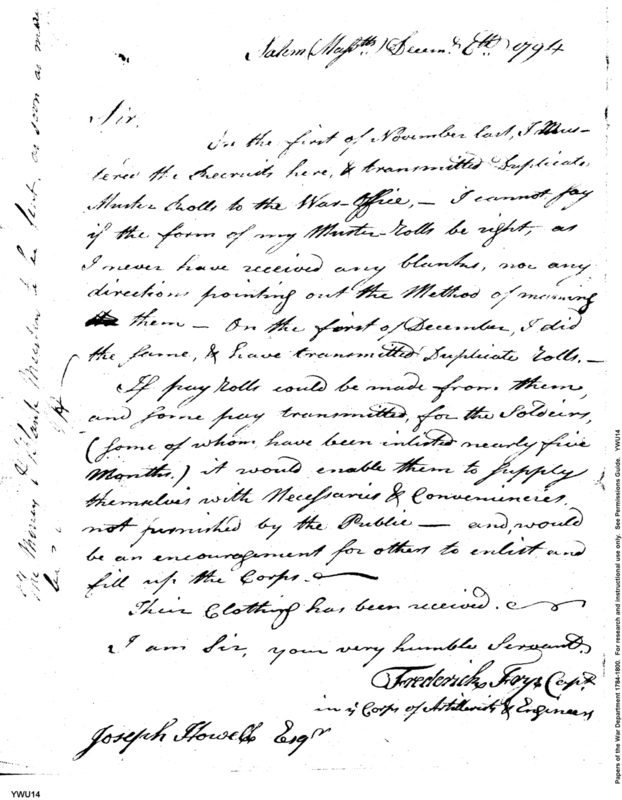 Salem (Massts) Decemr 6th 1794
Sir,
On the first of November last, I Mus-
tered the Recruits here, & transmitted Duplicate
Muster Rolls to the War-Office, — I cannot say
if the form of my Muster-Rolls be right, as
I never have received any blanks, nor any
directions pointing out the Method of
them — On the first of December, I did
the same, & have transmitted Duplicate Rolls. —
If pay Rolls could be made from them,
and some pay transmitted, for the Soldeirs,
(some of whom have been inlisted nearly five
Months,) it would enable them to supply
themselves with Necessaries & Conveniencies
not furnished by the Public — and, would
be an encouragement for others to enlist and
fill up the Corps. —
Their Clothing has been received.
I am Sir, your very humble Servant.
Frederick Frye Capt.
in ye Corps of Artillerists & Engineers
Joseph Howell Esqr
The Money & blank Muster to be sent as soon as
be
YWU14
Papers of the War Department 1784-1800. For research and instructional use only. See Permissions Guide. YWU14